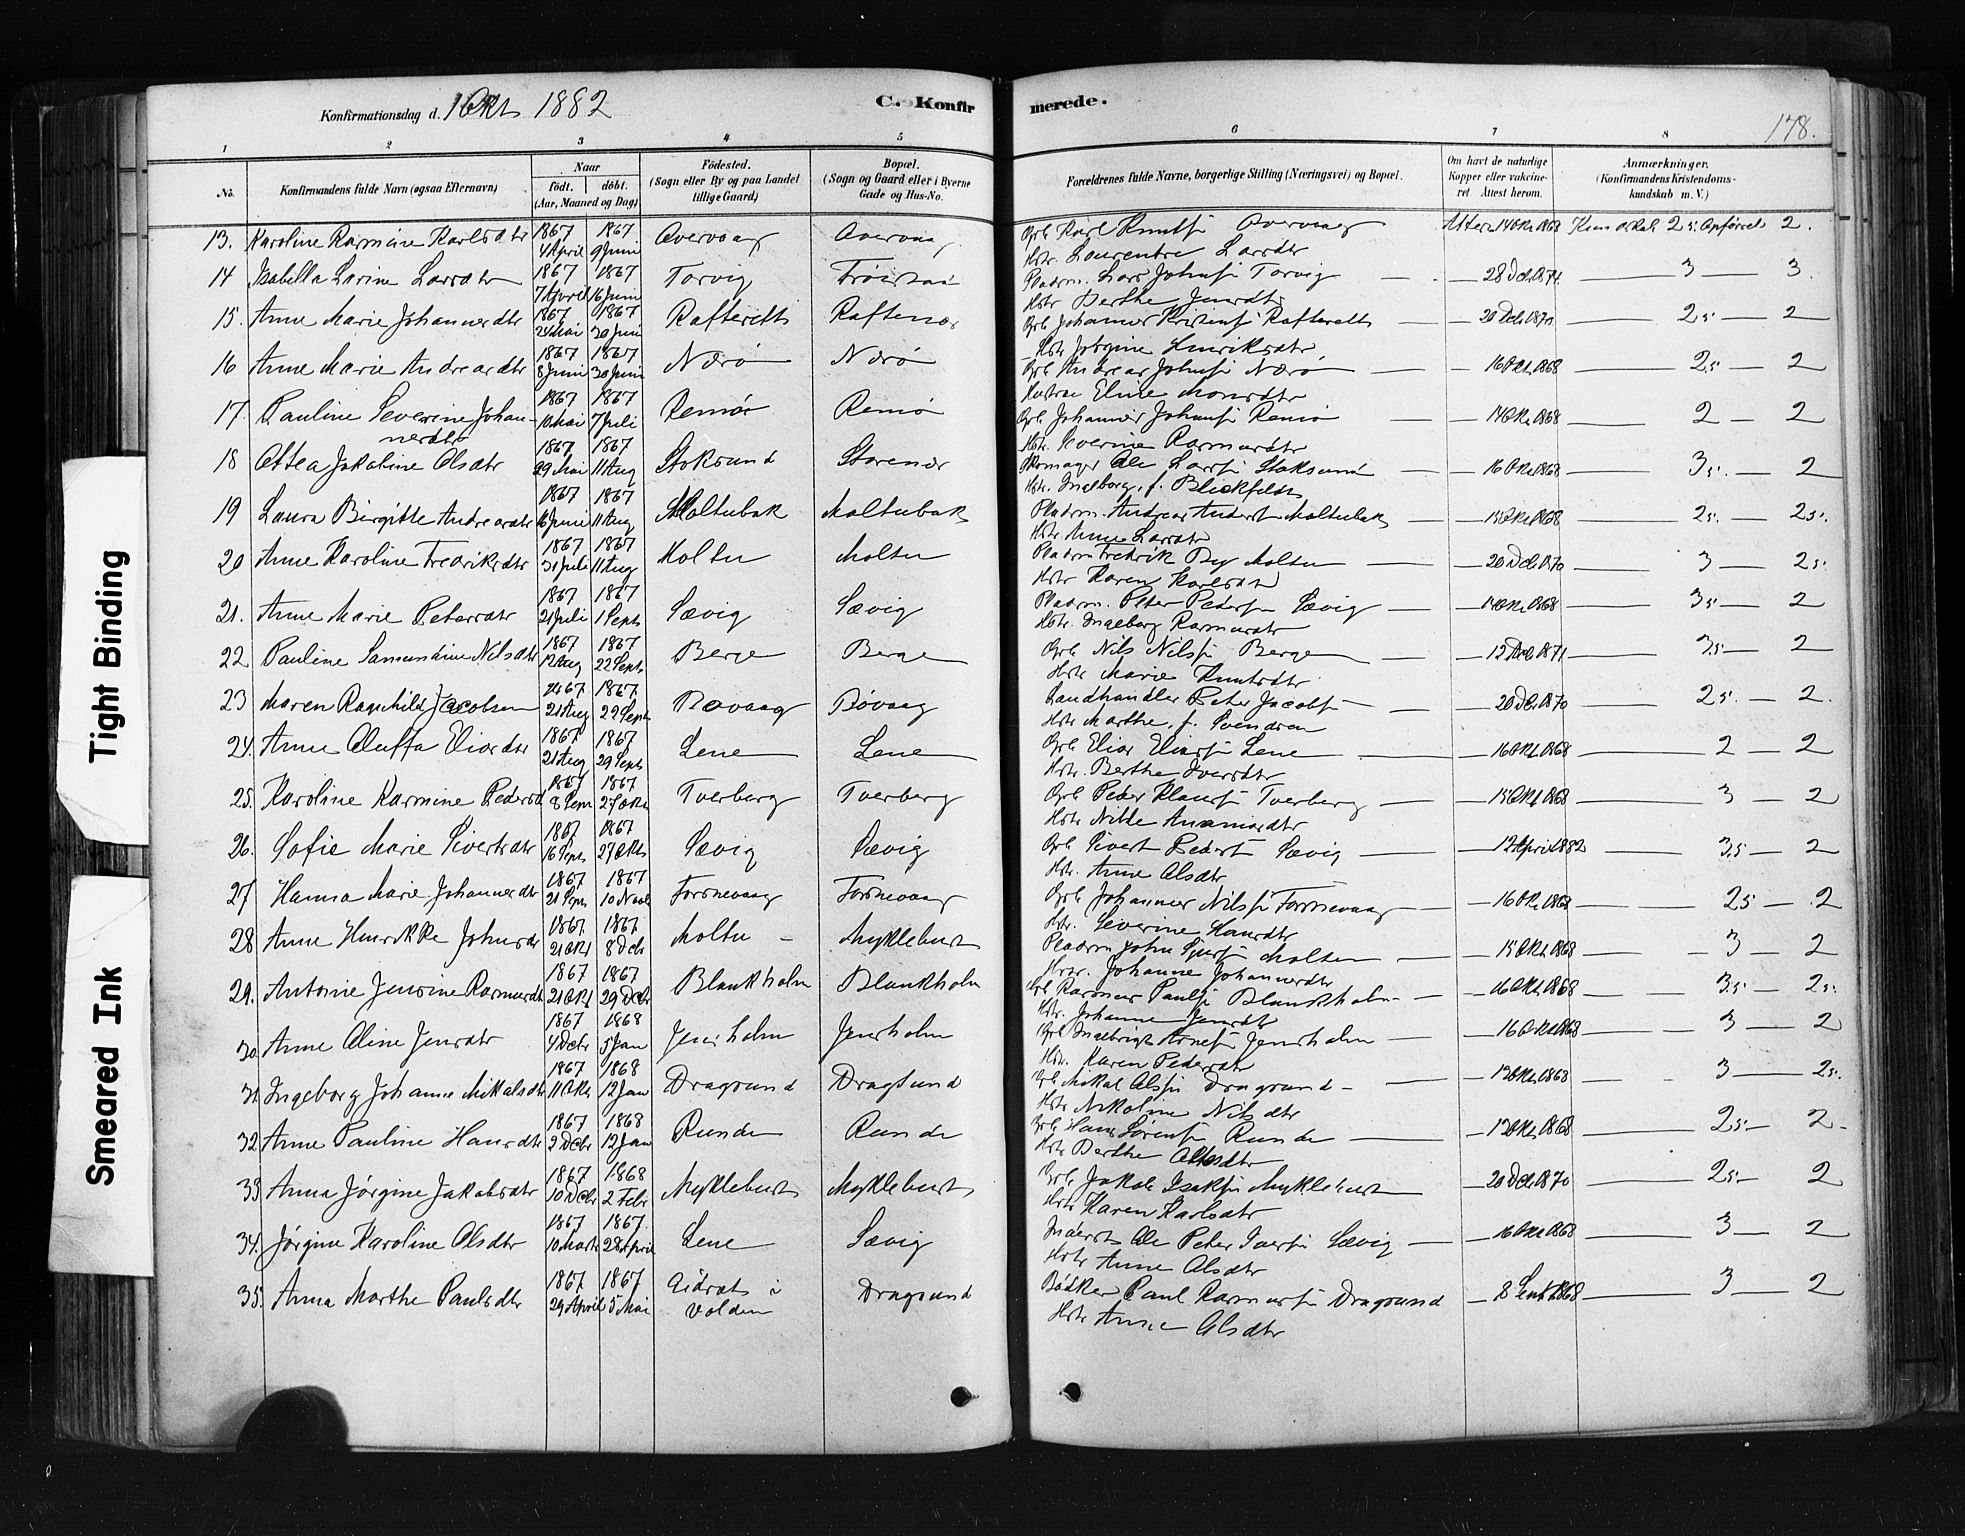 Konfirmationsdag d. 1 Okt 1882
C. Konfirmerede.
178.
1 2 3 4 5 6 7 8
No. Konfirmandens fulde Navn (ogsaa Efternavn) Naar født. døbt. (Aar, Maaned og Dag) Fødested. (Sogn eller By og paa Landet tillige Gaard) Bopæl. (Sogn og Gaard eller i Byerne Gade og Hus-No. Forældrenes fulde Navne, borgerlige Stilling (Næringsvei) og Bopæl. Om havt de naturlige Kopper eller vaccineret Attest herom. Anmærkninger. (Konfirmandens Kristendomskundskab m. V.)
13. Karoline Rasmine Karlsdtr 1867 4 April 1867 9 Juni Overvaag Overvaag Grb. Karl Knuts. Overvaag Hstr. Laurentse Larsdtr Attest 14 Okt 1868 Kundskab 2,5 Opførsel 2.
14 Isabella Larine Larsdtr 1867 7 April 1867 16 Juni Torvig Pladsm. Lars Johns. Torvig Hstr Berthe Jensdtr 28 Dcb. 1874 3 3.
15. Anne Marie Johannesdtr 1867 24 Mai 1867 30 Juni Rafteseth Raftenes Grb Johannes Kristens. Rafteseth Hstr Jørgine Henriksdtr 20 Dcb. 1870 25 2
16 Anne Marie Andreasdtr 1867 8 Juni 1867 30 Juni Nærø Nærø Grb Andreas Johns. Nærø Hustru Eline Monsdtr 16 Okt. 1868 25 2
17. Pauline Severine Johannesdtr 1867 10 Mai 1867 7 Juli Remø Remø Grb. Johannes Johans. Remø Hstr. Severine Rasmusdtr 14 Okt. 1868 2 2
18 Ottea Jakobine Olsdtr 1867 29 Mai 1867 11 Aug Stoksund Storenes Skomager Ole Lars. Stoksund Hstr. Ingeborg, f. Blickfeldt 16 Okt 1868 35. 2
19 Laura Birgitte Andreasdtr 1867 16 Juni 1867 11 Aug Moltubak Moltubak Pladsm. Andreas Anders. Moltubak Hstr Anne Larsdtr 15 Okt 1868 25. 25.
20 Anne Karoline Fredriksdtr 1867 31 Juli 1867 11 Aug Moltu Moltu Pladsm Fredrik Moltu Hstr Karen Karlsdtr 20 Dcb. 1870 3 25.
21. Anne Marie Petersdtr 1867 21 Juli 1867 1 Sept Sævig Sævig Pladsm. Peter Peders. Sævig Hstr. Ingeborg Rasmusdtr 14 Okt. 1868 35 2
22 Pauline Samundine Nilsdtr 1867 12 Aug 1867 22 Sept Berge Berge Grb. Nils Nils. Berge Hstr Marie Knutsdtr 12 1871 35 2
23 Maren Ragnhild Jacobsen 1867 21 Aug 1867 29 Sept Bøvaag Bøvaag Landhandler Peter Jacobs. Hstr Marthe, f. Svendsen 20 Dcb. 1870 25. 2.
24. Anne Oluffa Eliasdtr 1867 21 Aug 1867 29 Sept Lene Lene Grb Elias Elias. Lene Hstr. Berthe Iversdtr 16 Okt. 1868 2 2
25. Karoline Karmine Pedersd 1867 8 Sept 1867 27 Okt Tverberg Tverberg Grb Peder Klaus. Tverberg Hstr Nille 15 Okt 1868 3 2
26. Sofie Marie Sivertsdtr 1867 16 Sept 1867 27 Okt Sævig Sævig Grb Sivert Peders. Sævig Hstr. Anne Olsdtr 12 April 1882 3.5 2
27 Hanna Marie Johannesdtr 1867 21 Sept 1867 10 Novb Fosnevaag Fosnevaag Grb Johannes Nils. Fosnevaag Hstr. Severine Hansdtr 16 Okt. 1868 25 2
28 Anne Henrikke Johnsdtr 1867 21 Okt 1867 8 Dcb Moltu Myklebust Pladsm John Moltu Hstr. Johanne Johannesdtr 15 Okt. 1868 3 2
29. Antonie Jensine Rasmusdtr 1867 21 Okt 1867 29 Dcbr Blankholm Blankholm Grb Rasmus Pauls. Blankholm Hstr. Johanne Jensdtr 16 Okt 1868 35 25.
30. Anne Oline Jensdtr 1867 4 Dcbr 1868 5 Jan Jensholm Jensholm Grb Ingebrigt Jensholm Hstr. Karen Pedersdtr 16 Okt 1868 3 2
31. Ingeborg Johanne Mikalsdtr 1867 11 Okt 1868 12 Jan Dragsund Dragsund Grb Mikal Ols. Dragsund Hstr Nikoline Nilsdtr 12 Okt. 1868 3 25.
32 Anne Pauline Hansdtr 1867 2 Dcbr 1868 12 Jan Runde Runde Grb. Hans Sørens. Runde Hstr Berthe 12 Okt. 1868 25 2
33 Anna Jørgine Jakobsdtr 1867 10 Dcbr 1868 2 Febr Myklebust Myklebust Grb Jakob Isaks. Myklebust Hstr Karen Karlsdtr 20 Dcb. 1870 25 2
34. Jørgine Karoline Olsdtr 1867 10 Marts 1867. 28 April Lene Sævig Inderst Ole Peter Ivers. Sævig Hstr Anne Olsdtr 16 Okt 1868 3 2
35. Anna Marthe Paulsdtr 1867 29 April 1867 5 Mai i Volden Dragsund Bødker Paul Rasmus. Dragsund Hstr Anne Olsdtr 8 Sept 1868 3 2
Tight Binding
Smeared Ink